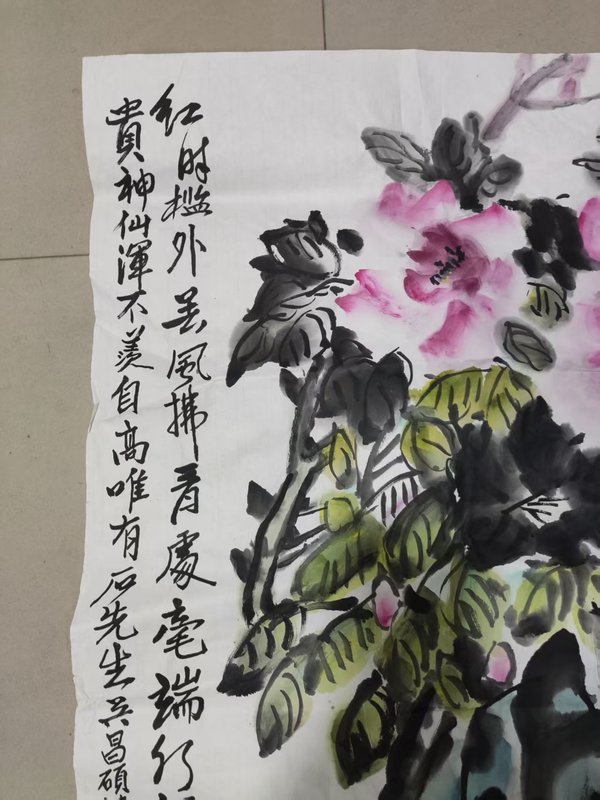 红时槛外吴风拂青处毫端行
贵神仙浑不羡自高唯有石先生吴昌硕